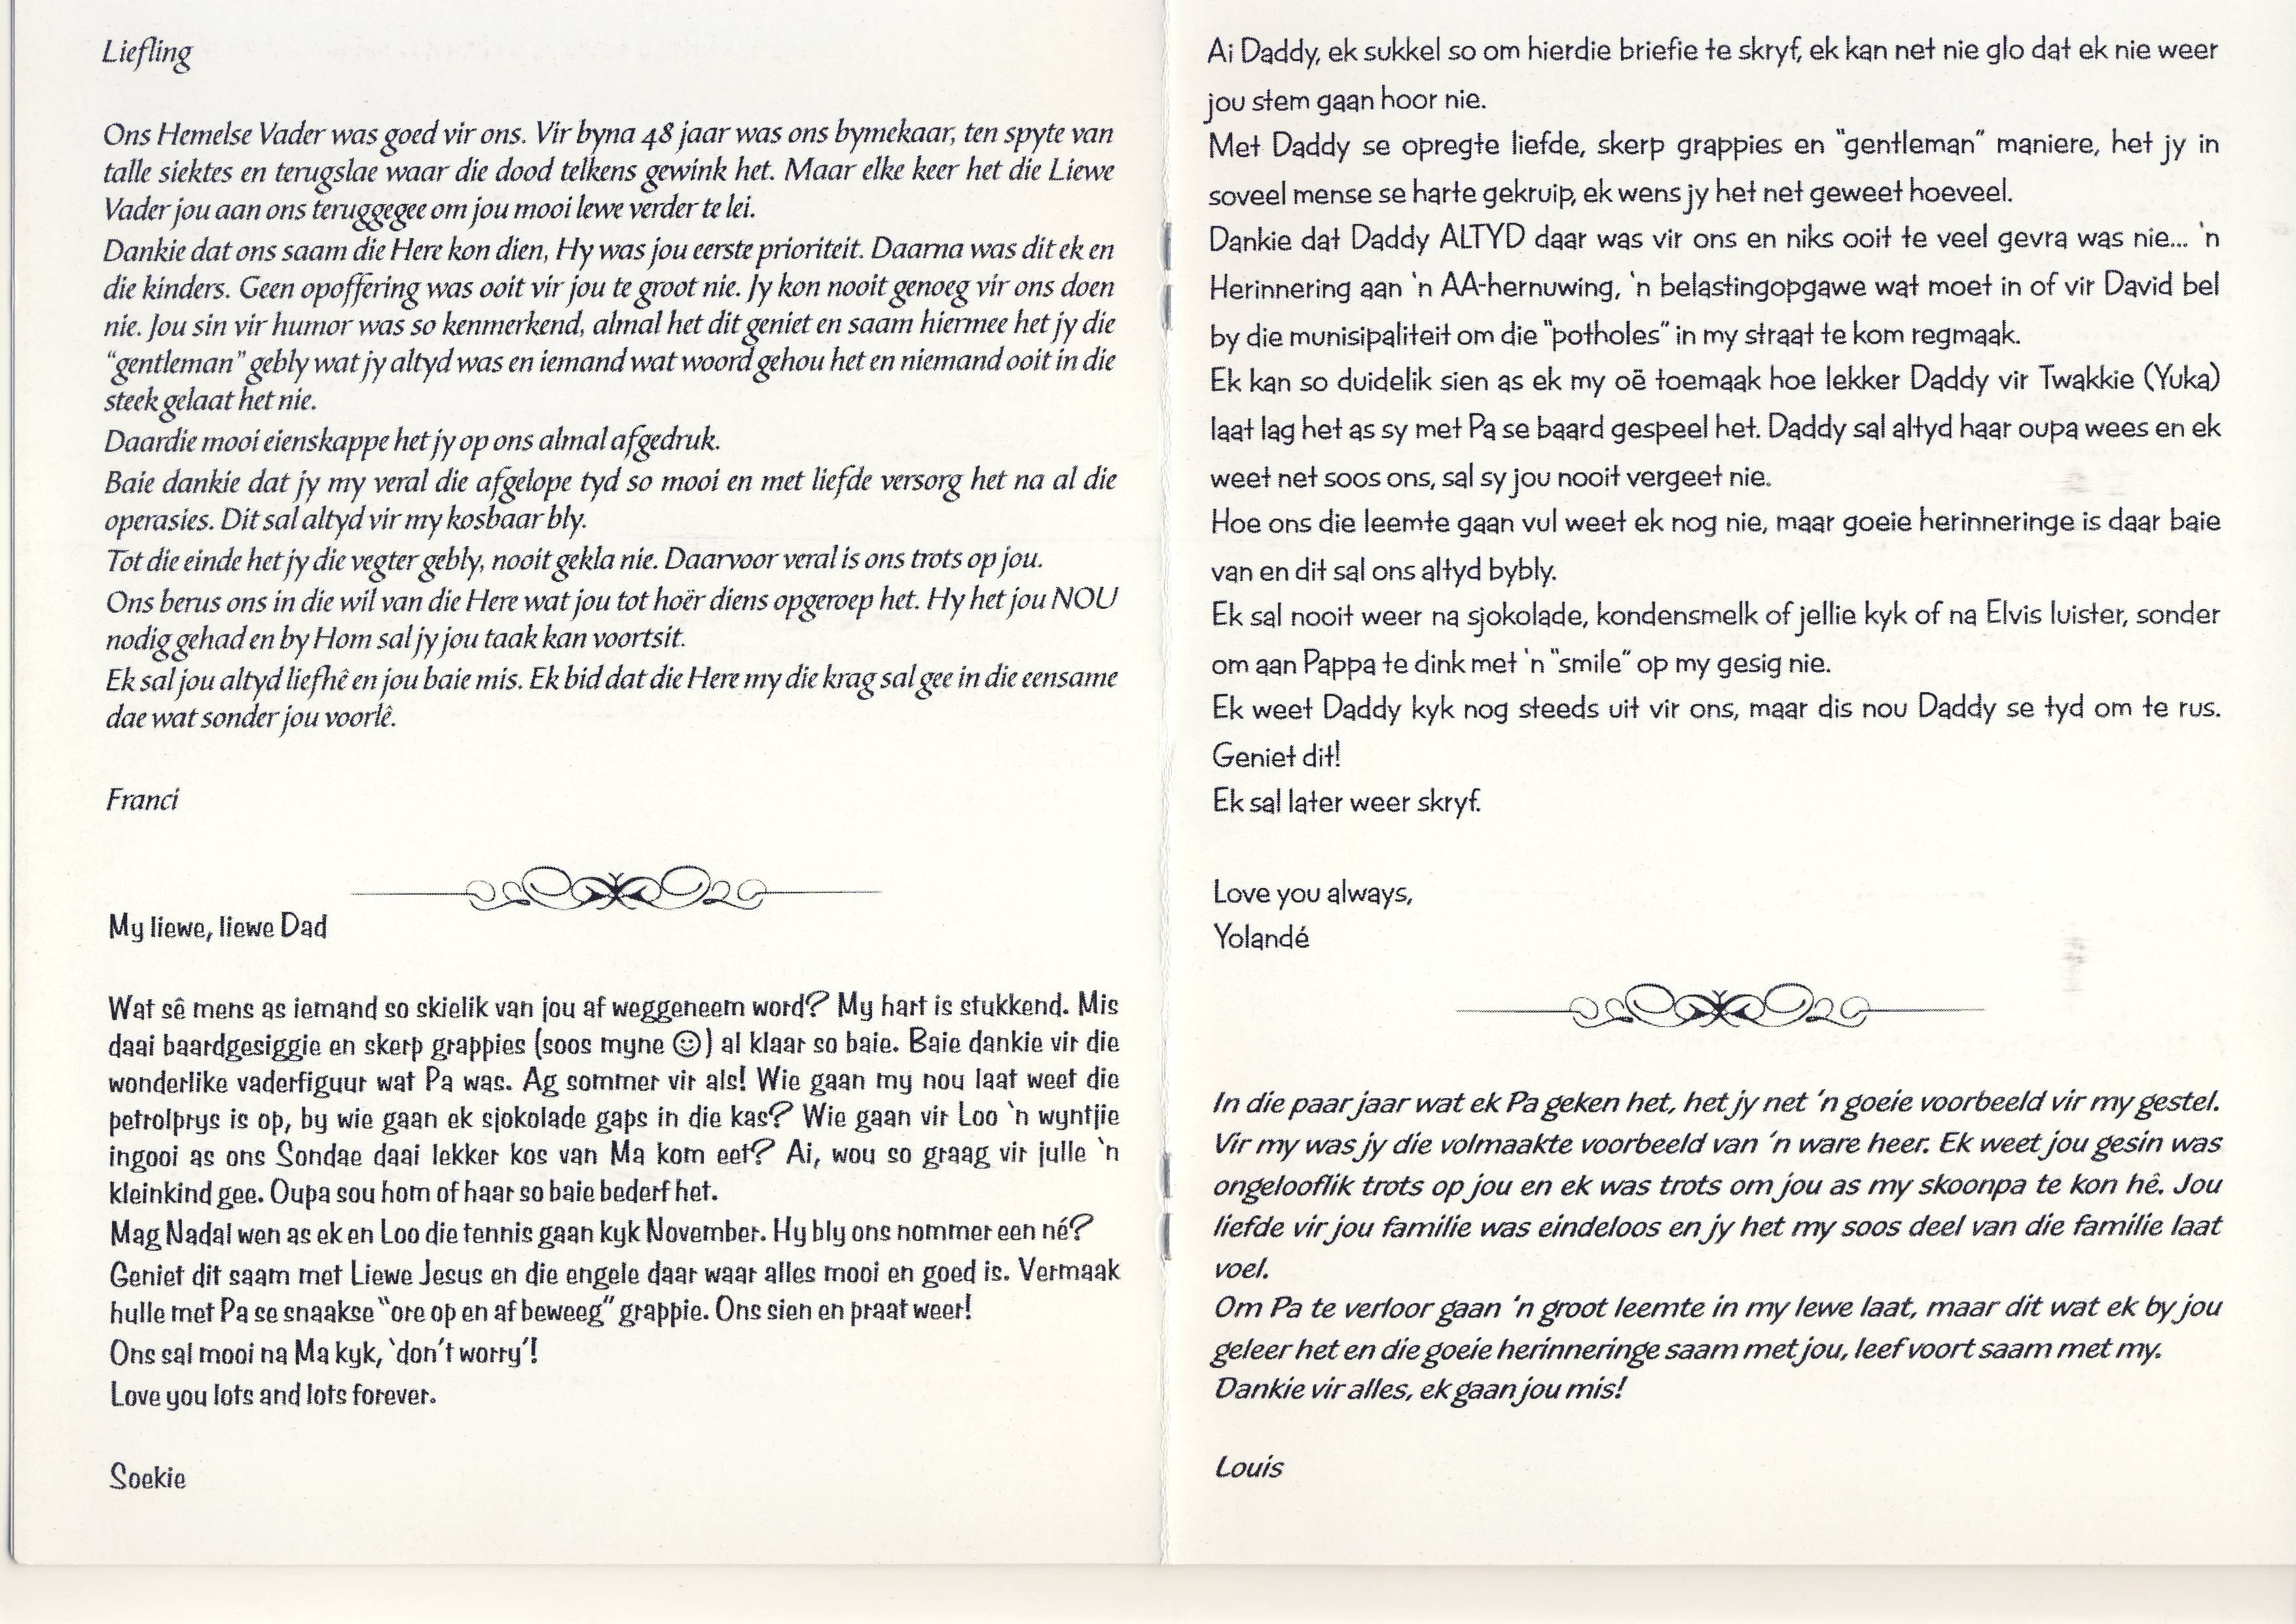 Liefling
Ons Hemelse Vader was goed vir ons. Vir byna 48 jaar was ons bymekaar, ten spyte van
talle siektes en terugslae waar die dood telkens gewink het. Maar elke keer het die Liewe
Vader jou aan ons teruggegee om jou mooi lewe verder te lei.
Dankie dat ons saam die Here kon dien, Hy was jou eerste prioriteit. Daarna was dit ek en
die kinders. Geen opoffering was ooit vir jou te groot nie. Jy kon nooit genoeg vir ons doen
nie. Jou sin vir humor was so kenmerkend, almal het dit geniet en saam hiermee het jy die
“gentleman” gebly wat jy altyd was en iemand wat woord gehou het en niemand ooit in die
steek gelaat het nie.
Daardie mooi eienskappe het jy op ons almal afgedruk.
Baie dankie dat jy my veral die afgelope tyd so mooi en met liefde versorg het na al die
operasies. Dit sal altyd vir my kosbaar bly.
Tot die einde het jy die vegter gebly, nooit gekla nie. Daarvoor veral is ons trots op jou.
Ons berus ons in die wil van die Here wat jou tot hoër diens opgeroep het. Hy het jou NOU
nodig gehad en by Hom sal jy jou taak kan voortsit.
Ek sal jou altyd liefhê en jou baie mis. Ek bid dat die Here my die krag sal gee in die eensame
dae wat sonder jou voorlê.
Franci
My liewe, liewe Dad
Wat sê mens as iemand so skielik van jou af weggeneem word? My hart is stukkend. Mis
daai baardgesiggie en skerp grappies (soos myne ☺) al klaar so baie. Baie dankie vir die
wonderlike vaderfiguur wat Pa was. Ag sommer vir als! Wie gaan my nou laat weet die
petrolprys is op, by wie gaan ek sjokolade gaps in die kas? Wie gaan vir Loo ‘n wyntjie
ingooi as ons Sondae daai lekker kos van Ma kom eet? Ai, wou so graag vir julle ‘n
kleinkind gee. Oupa sou hom of haar so baie bederf het.
Mag Nadal wen as ek en Loo die tennis gaan kyk November. Hy bly ons nommer een né?
Geniet dit saam met Liewe Jesus en die engele daar waar alles mooi en goed is. Vermaak
hulle met Pa se snaakse “ore op en af beweeg” grappie. Ons sien en praat weer!
Ons sal mooi na Ma kyk, ‘don’t worry’!
Love you lots and lots forever.
Soekie
Ai Daddy, ek sukkel so om hierdie briefie te skryf, ek kan net nie glo dat ek nie weer
jou stem gaan hoor nie.
Met Daddy se opregte liefde, skerp grappies en “gentleman” maniere, het jy in
soveel mense se harte gekruip, ek wens jy het net geweet hoeveel.
Dankie dat Daddy ALTYD daar was vir ons en niks ooit te veel gevra was nie... ‘n
Herinnering aan ‘n AA-hernuwing, ‘n belastingopgawe wat moet in of vir David bel
by die munisipaliteit om die “potholes” in my straat te kom regmaak.
Ek kan so duidelik sien as ek my oë toemaak hoe lekker Daddy vir Twakkie (Yuka)
laat lag het as sy met Pa se baard gespeel het. Daddy sal altyd haar oupa wees en ek
weet net soos ons, sal sy jou nooit vergeet nie.
Hoe ons die leemte gaan vul weet ek nog nie, maar goeie herinneringe is daar baie
van en dit sal ons altyd bybly.
Ek sal nooit weer na sjokolade, kondensmelk of jellie kyk of na Elvis luister, sonder
om aan Pappa te dink met ‘n “smile” op my gesig nie.
Ek weet Daddy kyk nog steeds uit vir ons, maar dis nou Daddy se tyd om te rus.
Geniet dit!
Ek sal later weer skryf.
Love you always,
Yolandé
In die paar jaar wat ek Pa geken het, het jy net ‘n goeie voorbeeld vir my gestel.
Vir my was jy die volmaakte voorbeeld van ‘n ware heer. Ek weet jou gesin was
ongelooflik trots op jou en ek was trots om jou as my skoonpa te kon hê. Jou
liefde vir jou familie was eindeloos en jy het my soos deel van die familie laat
voel.
Om Pa te verloor gaan ‘n groot leemte in my lewe laat, maar dit wat ek by jou
geleer het en die goeie herinneringe saam met jou, leef voort saam met my.
Dankie vir alles, ek gaan jou mis!
Louis